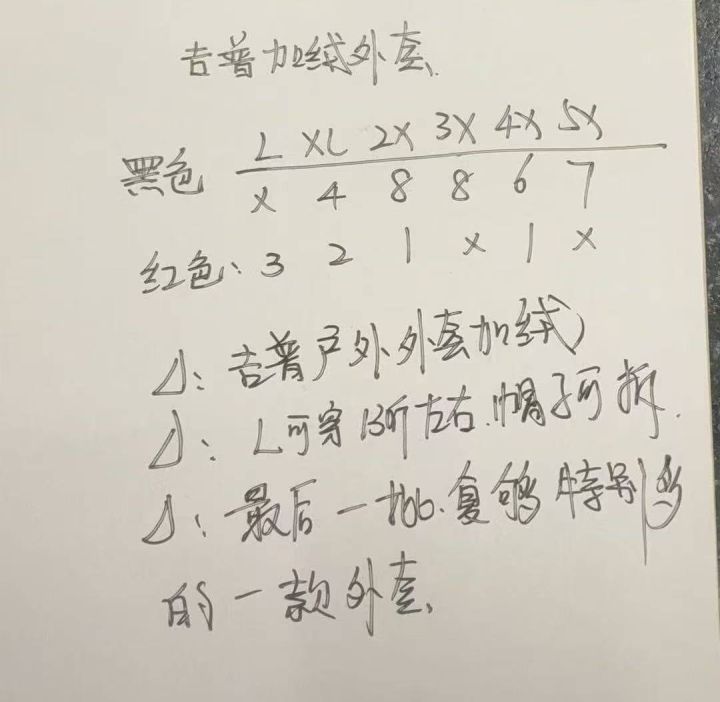 吉普加绒外套
L XL 2X 3X 4X 5X
黑色 X 4 8 8 6 7
红色: 3 2 1 X 1 X
△: 吉普户外外套加绒)
△: L可穿135斤左右.帽子可拆.
△: 最后一批.复购特别多
的一款外套.